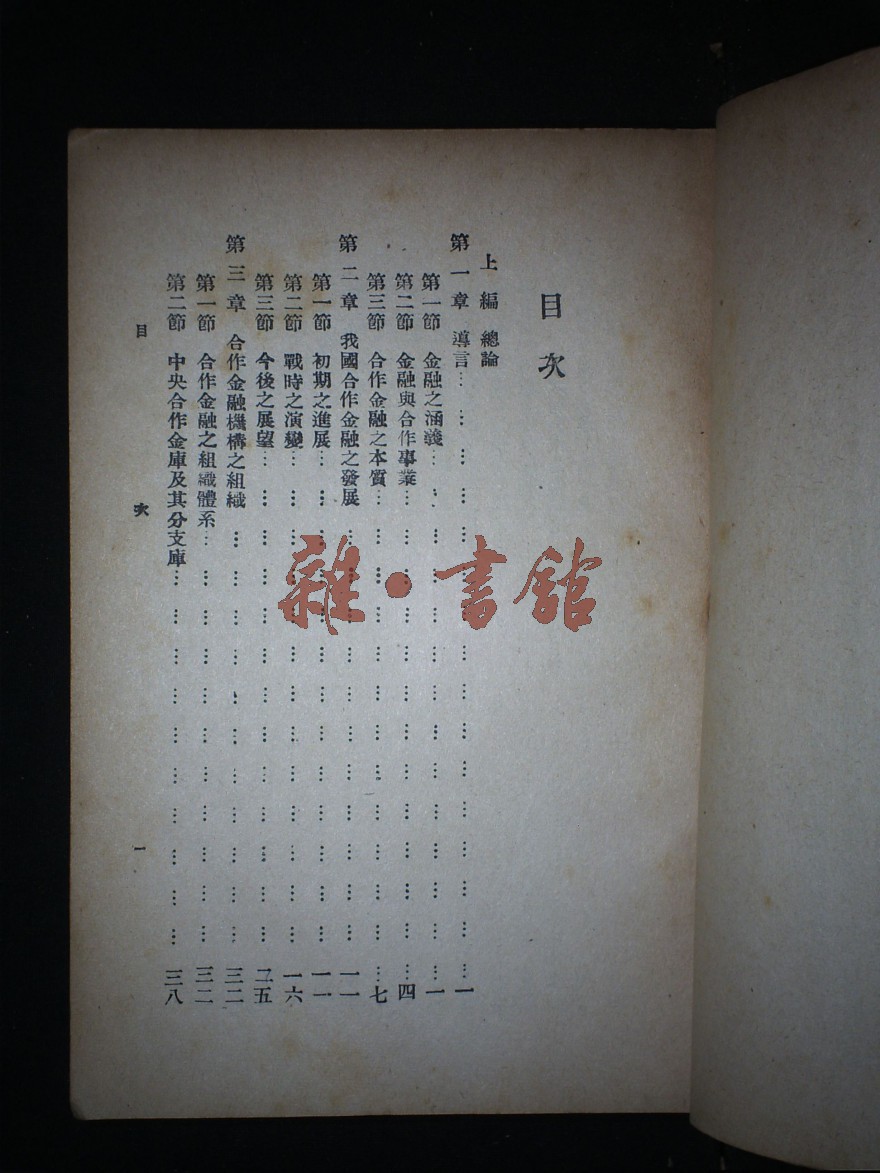 目次
上編 總論
第一章 導言… … … … … … … … … … … … … …一
第一節 金融之涵義… … … … … … … … … … … …一
第二節 金融與合作事業… … … … … … … … … … …四
第三節 合作金融之本質… … … … … … … … … … …七
第二章 我國合作金融之發展 … … … … … … … … … …一一
第一節 初期之進展… … … … … … … … … … … …一一
第二節 戰時之演變… … … … … … … … … … … …一六
第三節 今後之展望… … … … … … … … … … … …二五
第三章 合作金融機構之組織 … … … … … … … … … …三二
第一節 合作金融之組織體系… … … … … … … … … …三二
第二節 中央合作金庫及其分支庫… … … … … … … … …三八
目次 一
雜·書館